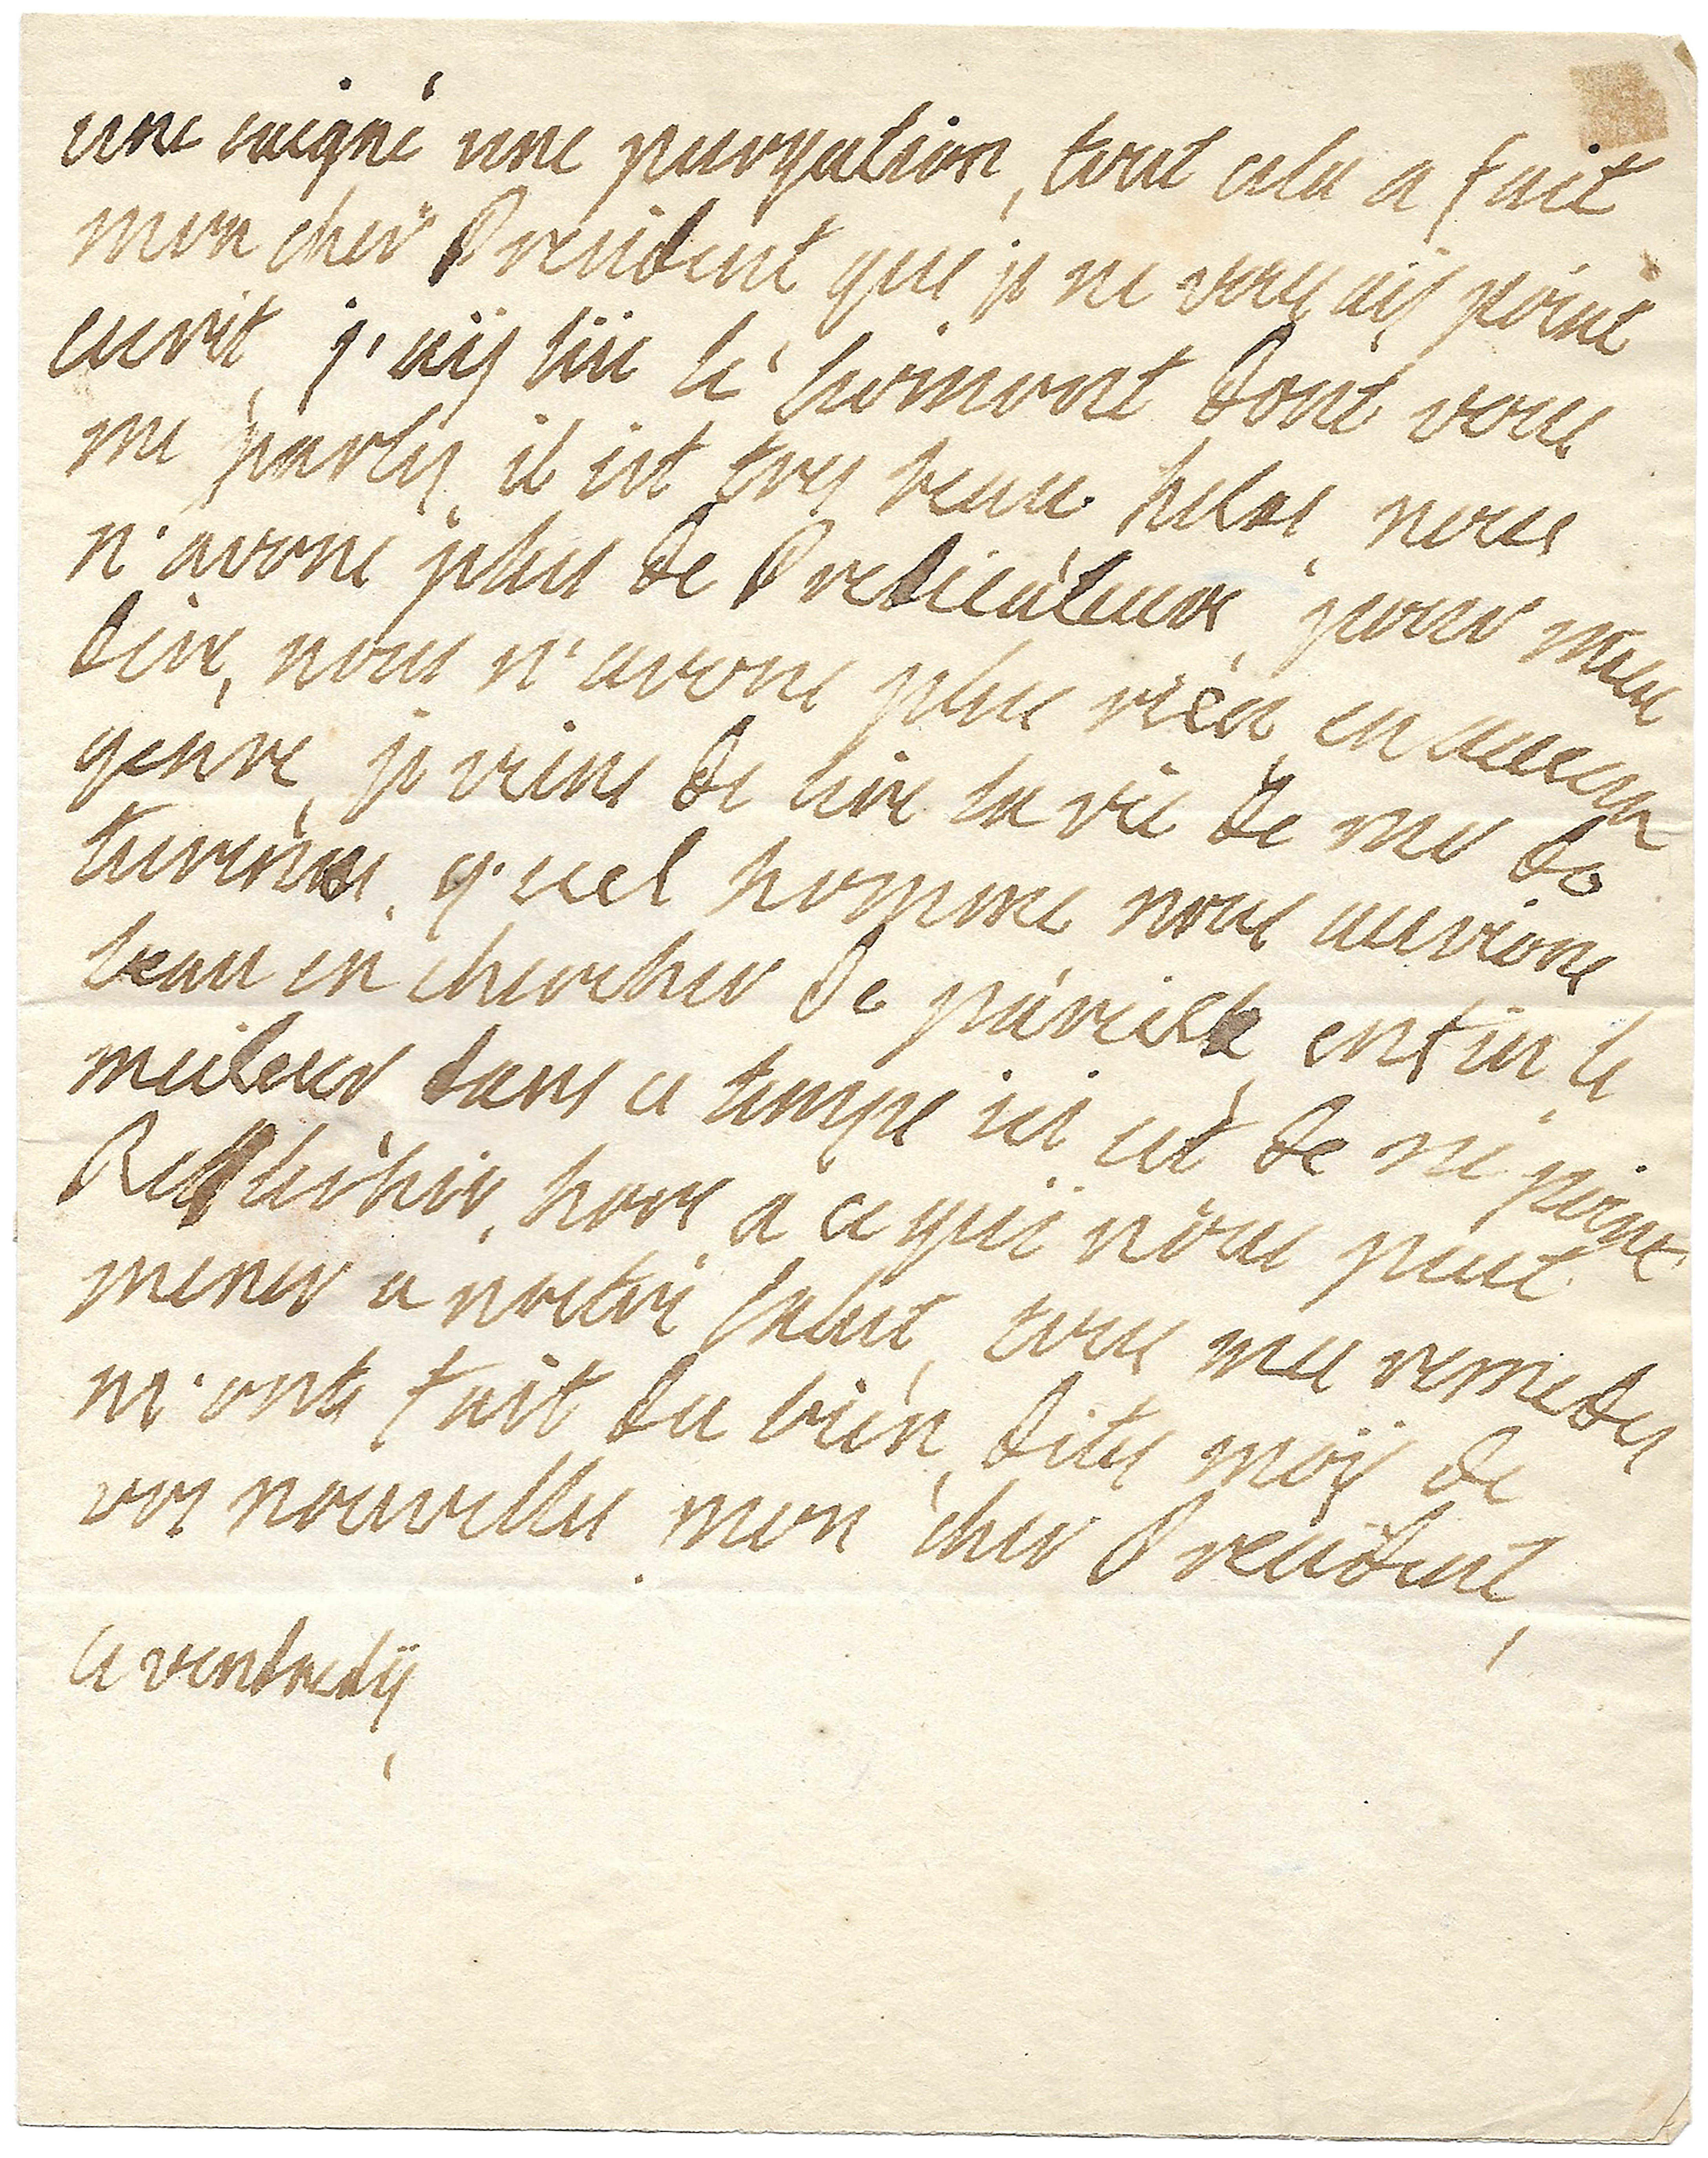 une saigné une purgation, tout cela a fait
mon cher President que je ne vous aÿ point
escrit, j'aÿ lüe le sermont dont vous
me parlés, il est tres beau helas, nous
n'avons plus de Predicateurs, pour mieu
dire, nous n'avons plus rien, en aucun
genre, je viens de lire la vie de mr de
turenne, quel homme nous aurions
beau en chercher de pareils, enfin le
meileur dans ce temps ici est de ne point
Reflechir, hors a ce qui nous peut
mener a nostre salut, tous mes remedes
m'onts fait du bien, dites moÿ de
vos nouvelles mon cher President,
ce vendredÿ